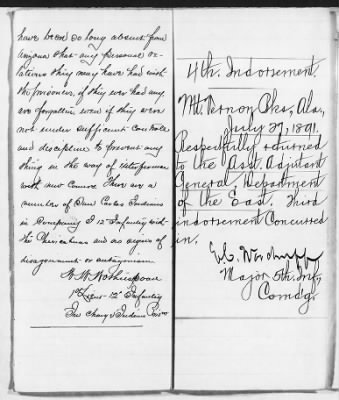 have been so long absent from
Arizona that any personal re-
lations they may have had with
the prisoners, if they ever had any,
are forgotten even if they were
not under sufficient control
and discipline to prevent any
thing in the way of
with and There are a
number of San Carlos Indians
in Company I 12" Infantry with
the Chiricahuas and no signs of
disagreement or antagonism
W. W. Wotherspoon
1st Lieut. 12" Infantry
In Charge Indian Pris
4th. Indorsement.
Mt. Vernon Bks, Ala,
July 27, 1891.
Respectfully returned
to the Asst. Adjutant
General Department
of the East. Third
indorsement Concurred
in.
Woodruff
Major 5th. Inf,
Comdg.